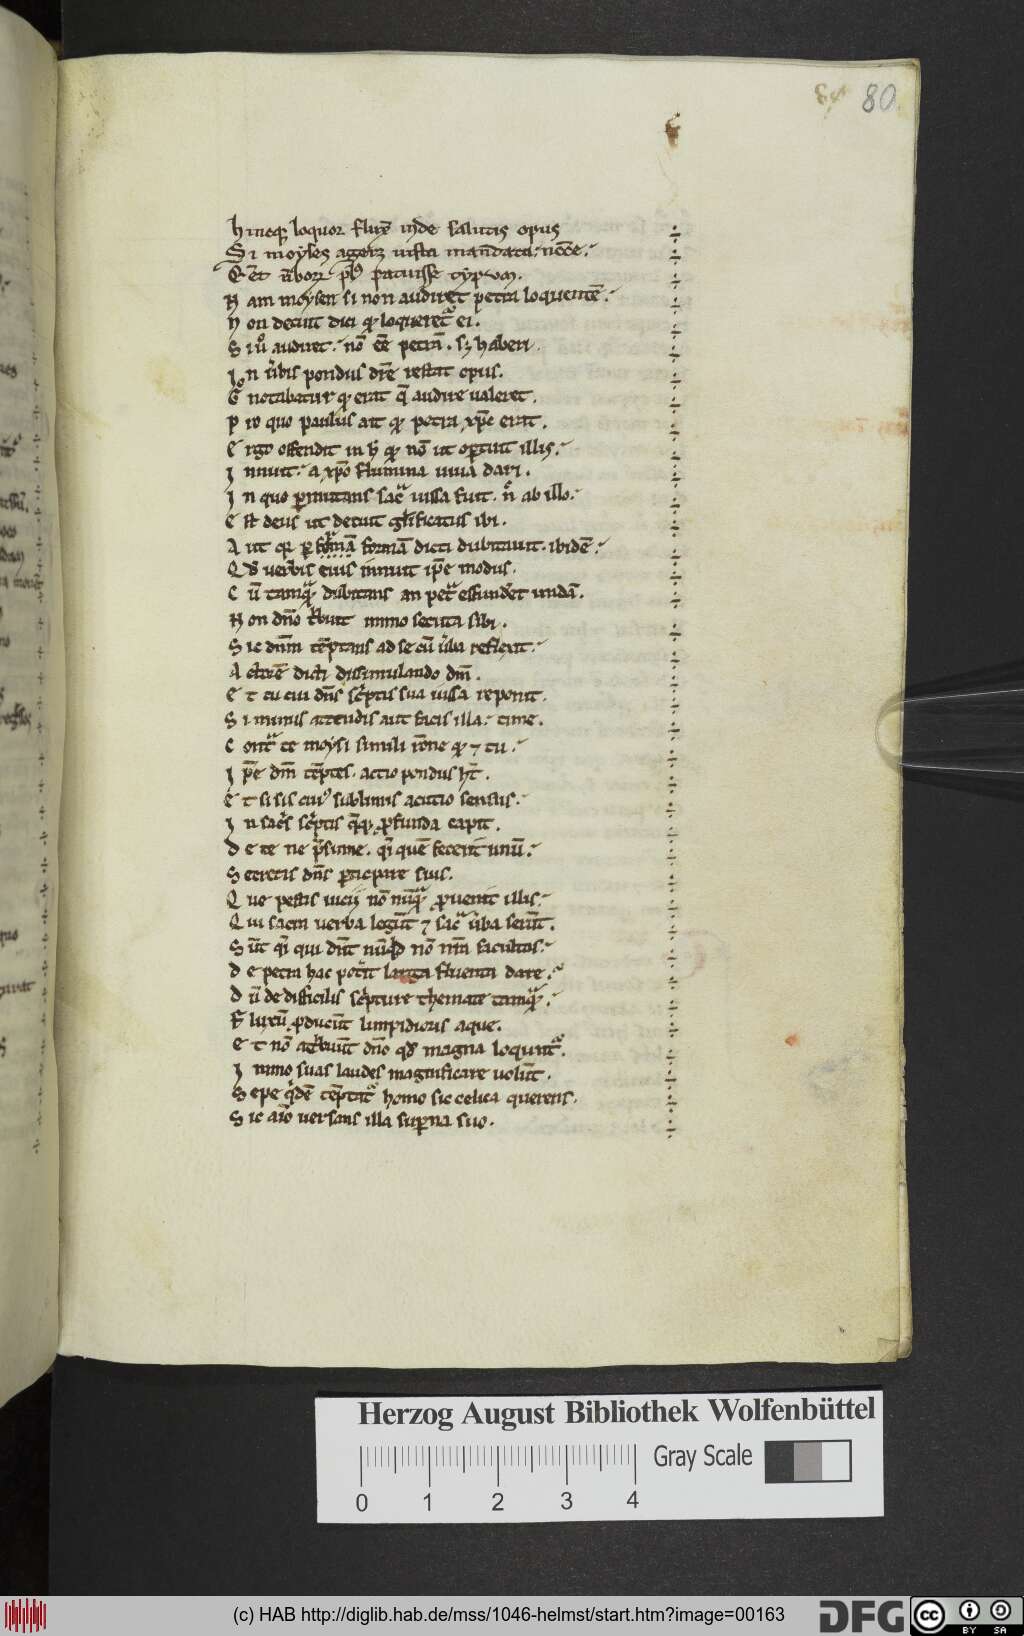 80
hincq; loquor flux̄ inde salutis opus
Si moyses ageret iussa mandata necē
Nam moysen si non audiret petra loquentē
Non decuit dici qd loqueret ei
Si u audiret nō eē petrā sz haberi
In ūbis pondus dr̄e restat opus
notabatur qd erat q̄ audire ualeret
P ro quo paulus ait qd petra xp̄c erat
Ergo offendit in h qd nō ut oportuit illis
Innuit a xp̄o flumina uiua dari
In quo pmutans sac̄ iussa fuit n̄ ab illo
Est deus ut decuit glificatus ibi
Aut qd p formā formā dicti dubitauit ibidē
Qd uerbis eius innuit ip̄e modus
Cū tamq̄ dubitans an pet effundet undā
Non dn̄o tbuit immo secuta sibi
Sic dn̄m tēptans ad se cū ūba reflexit
Actorē dicti dissimulando dn̄m
Et tu cui dn̄s sc̄ptis sua iussa reponit
Si minus attendis aut facis illa time
Cont te moysi simili rōne qd ⁊ tu
Ip̄e dn̄m tēptes actio pondus ht̄
Et si sis cui sublimis acutio sensus
In sacs sc̄ptis q̄q; pfunda capit
De te ne p̄sume qi quē fecerit unū
Secretis dn̄s pticipare suis
Que pestis uicii nō nūq̄ puenit illis
Qui sacra uerba legūt ⁊ sac̄ ūba serūt
Sūt qi qui dn̄t nūqd nō nr̄a facultas
De petra hac potit larga fluenta dare
Dū de difficilis sc̄pture themate tamq̄
Fluxū pducūt limpidioris aque
Et nō attbuūt dn̄o qd magna loqunt
Immo suas laudes magnificare uolūt
Sepe qdē tēptat homo sic celica querens
Sic aīo uersans illa supna suo
Herzog August Bibliothek Wolfenbüttel
Gray Scale
0 1 2 3 4
(c) HAB http://diglib.hab.de/mss/1046-helmst/start.htm?image=00163
DFG cc BY SA